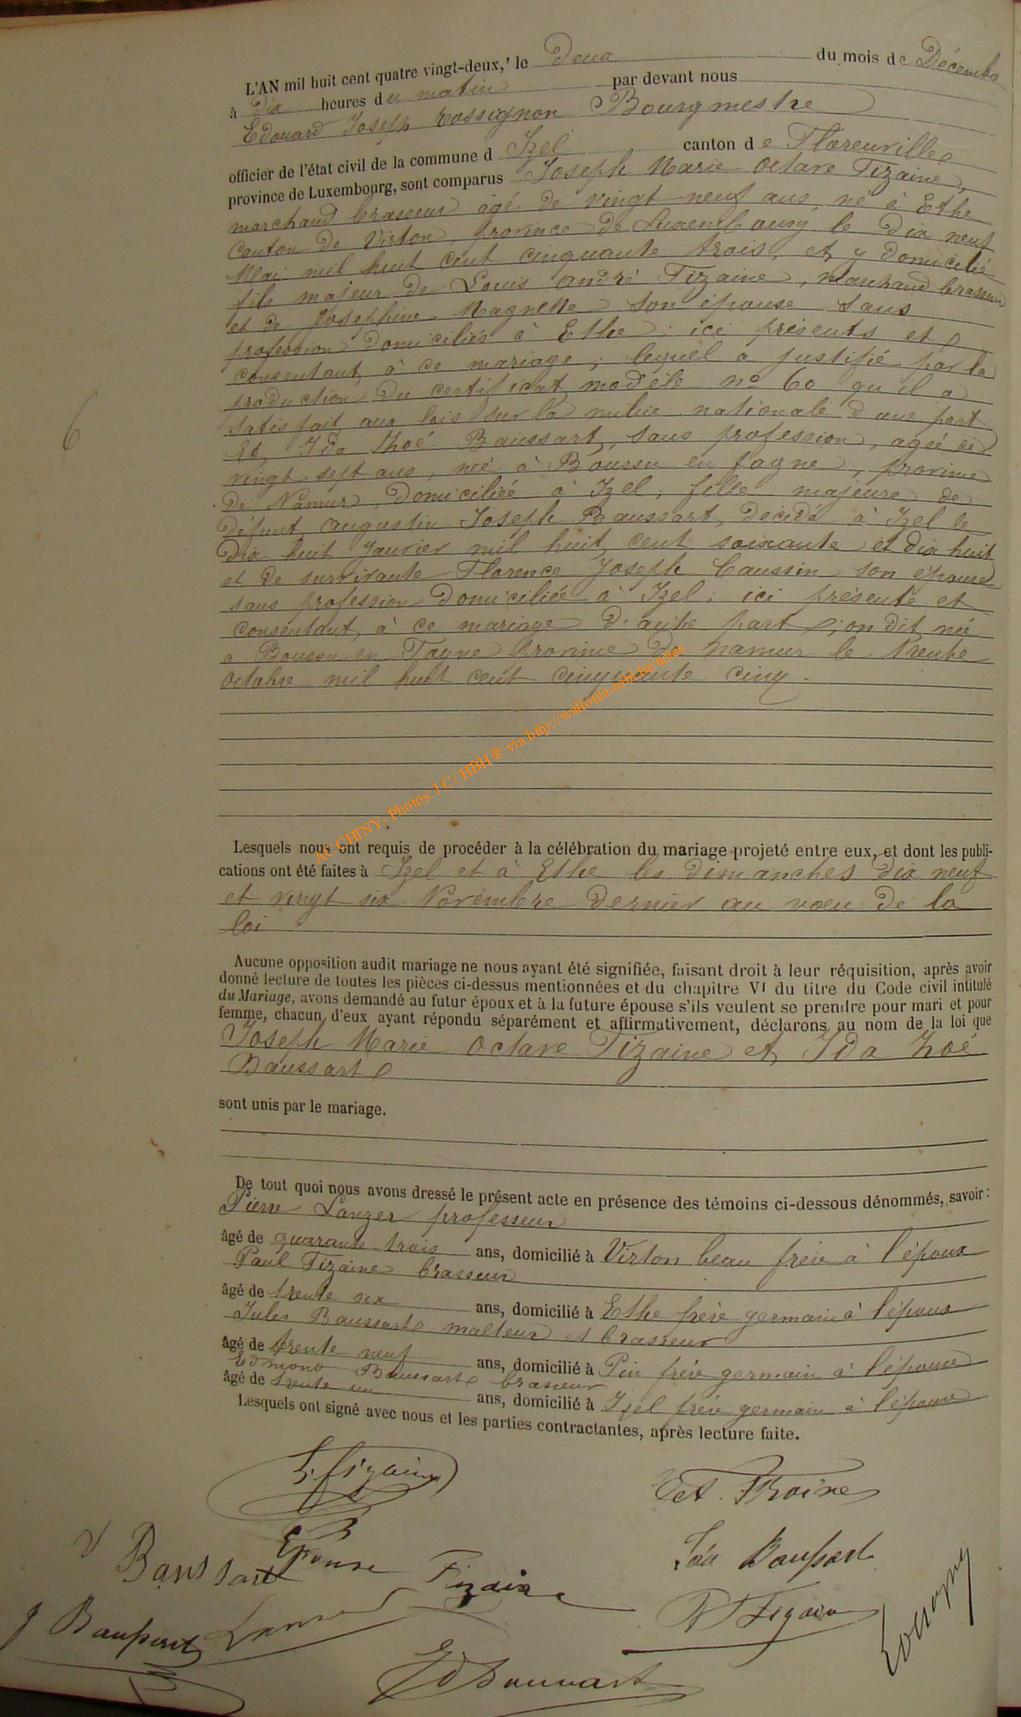 L'AN mil huit cent quatre vingt-deux, le deux du mois de Décembre
à dix heures du matin par devant nous
Edouard Joseph Rossignon Bourgmestre
officier de l'état civil de la commune d Izel canton de Florenville
province de Luxembourg, sont comparus Joseph Marie Octave Tizaine,
marchand brasseur agé de vingt neuf ans, né à Ethe
canton de Virton, province de Luxembourg le dix neuf
Mai mil huit cent cinquante trois, et y domicilié
fils majeur de Louis André Tizaine, marchand brasseur
et de Joséphine Magnette son épouse sans
profession domiciliés à Ethe; ici présents et
consentant à ce mariage; lequel a justifié par la
production du certificat modèle n° 60 qu'il a
satisfait aux lois sur la milice nationale d'une part
Et Ida Zoé Baussart, sans profession, agée de
vingt sept ans, née à Boussu en fagne, province
de Namur, domiciliée à Izel, fille majeure de
défunt Augustin Joseph Baussart, décédé à Izel le
dix huit Janvier mil huit cent soixante et dix huit
et de survivante Florence Joseph Caussin son épouse
sans profession domiciliée à Izel; ici présente et
consentant à ce mariage d'autre part; on dit née
à Boussu en Fagne province de Namur le trente
octobre mil huit cent cinquante cinq.
AC CHINY - Photos J C/ HBH® via http://wallonia-asbl.be/
Lesquels nous ont requis de procéder à la célébration du mariage projeté entre eux, et dont les publi-
cations ont été faites à Izel et à Ethe les dimanches dix neuf
et vingt six Novembre dernier au voeu de la
loi
Aucune opposition audit mariage ne nous ayant été signifiée, faisant droit à leur réquisition, après avoir
donné lecture de toutes les pièces ci-dessus mentionnées et du chapitre VI du titre du Code civil intitulé
du Mariage, avons demandé au futur époux et à la future épouse s'ils veulent se prendre pour mari et pour
femme, chacun d'eux ayant répondu séparément et affirmativement, déclarons au nom de la loi que
Joseph Marie Octave Tizaine et Ida Zoé
Baussart
sont unis par le mariage.
De tout quoi nous avons dressé le présent acte en présence des témoins ci-dessous dénommés, savoir:
Pierre Lanzer professeur
âgé de quarante trois ans, domicilié à Virton beau frère à l'époux
Paul Tizaine brasseur
âgé de trente six ans, domicilié à Ethe frère germain à l'époux
Jules Baussart malteur et brasseur
âgé de trente neuf ans, domicilié à Pin frère germain à l'épouse
Edmond Baussart brasseur
âgé de trente un ans, domicilié à Izel frère germain à l'épouse
Lesquels ont signé avec nous et les parties contractantes, après lecture faite.
L. Tizaine
Baussart
Epouse Tizaine
Ida Baussart
J Baussart
P Tizaine
Ed Baussart
6